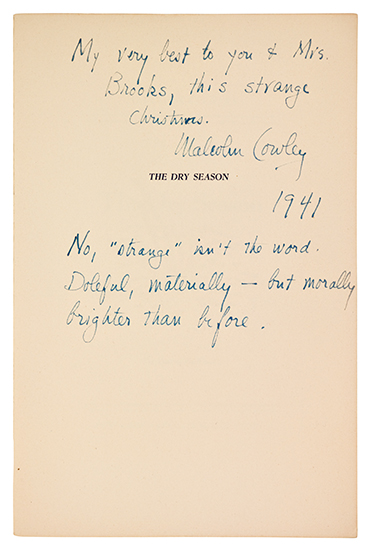 My very best to you & Mrs.
Brooks, this strange
Christmas.
Malcolm Cowley
THE DRY SEASON
1941
No, "strange" isn't the word.
Doleful, materially — but morally
brighter than before.